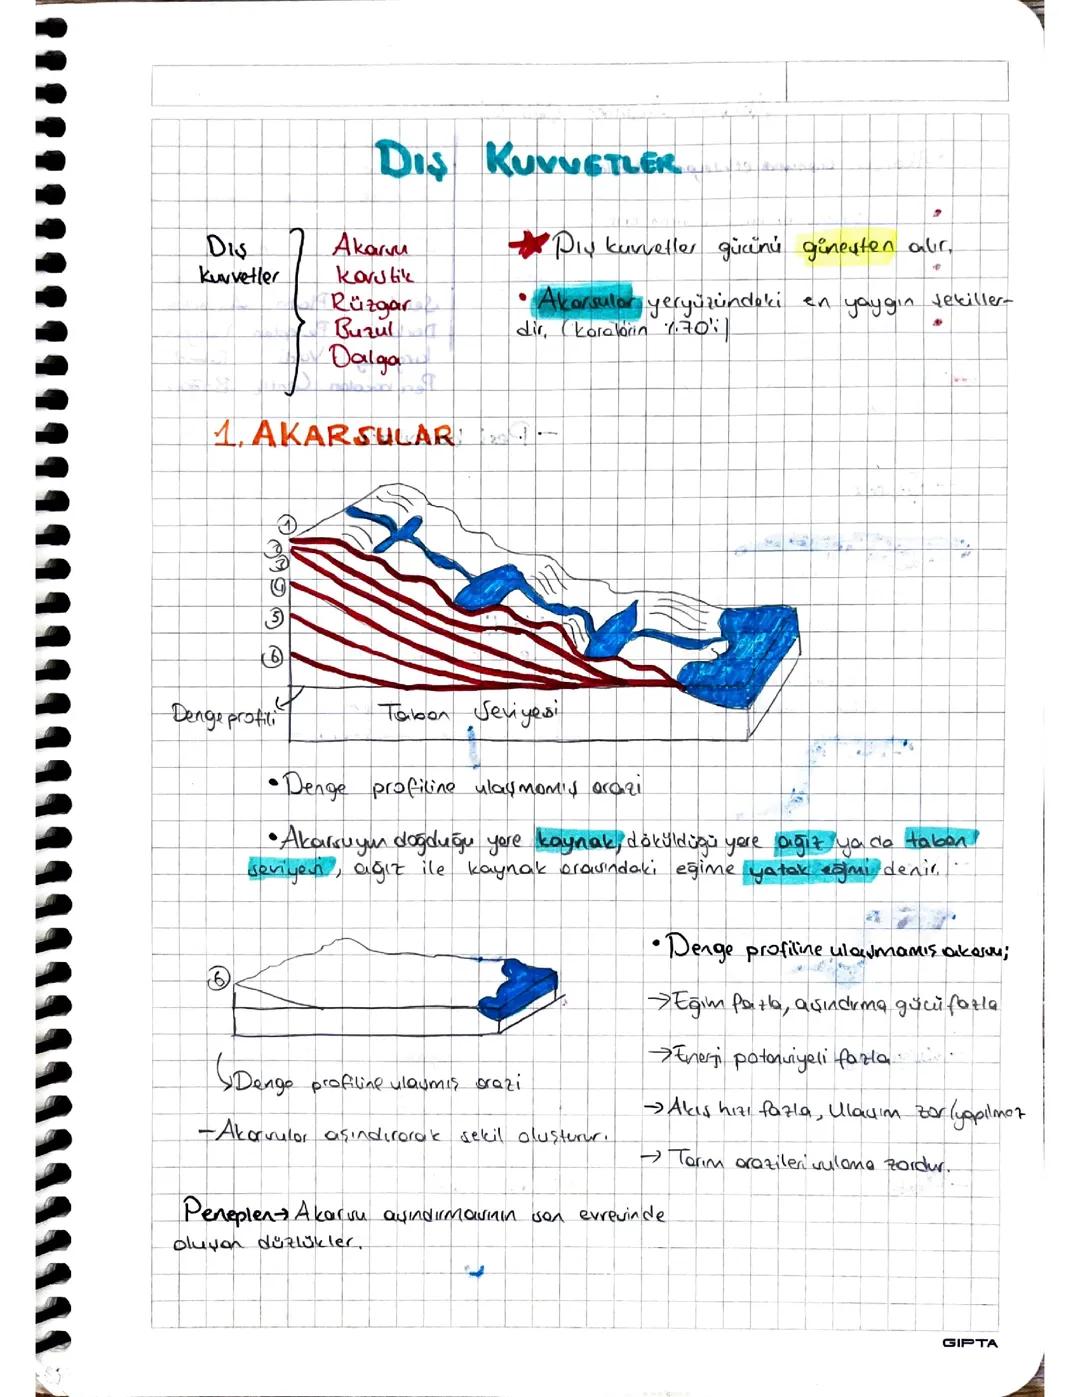 DIŞ KUVVETLER
Dış
kuvvetler
Akarsu
Karstik
Rüzgar
Buzul
Dalga
Dış kuvvetler gücünü güneşten alır.
• Akarsular yeryüzündeki en yaygın şekiller-
dir. (karaların %70'i)
1. AKARSULAR
1
2
3
4
5
6
Denge profili
Taban Seviyesi
• Denge profiline ulaşmamış arazi
• Akarsuyun doğduğu yere kaynak, döküldüğü yere ağız ya da taban
seviyesi, ağız ile kaynak arasındaki eğime yatak eğimi denir.
6
Denge profiline ulaşmış arazi
- Akarsular aşındırarak şekil oluşturur.
• Denge profiline ulaşmamış akarsu;
→ Eğim fazla, aşındırma gücü fazla
→ Enerji potansiyeli fazla
→ Akış hızı fazla, Ulaşım zor (yapılmaz
→ Tarım arazileri sulama zordur.
Peneplen → Akarsu aşındırmasının son evresinde
oluşan düzlükler.
GIPTA